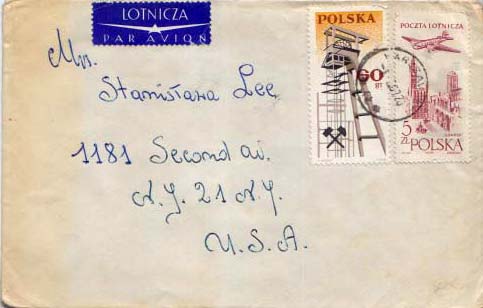 LOTNICZA
PAR AVION
POLSKA
60 gr
POCZTA LOTNICZA
5 ZŁ POLSKA
Mrs.
Stanisława Lee
1181 Second av.
N.Y. 21 N.Y.
U.S.A.